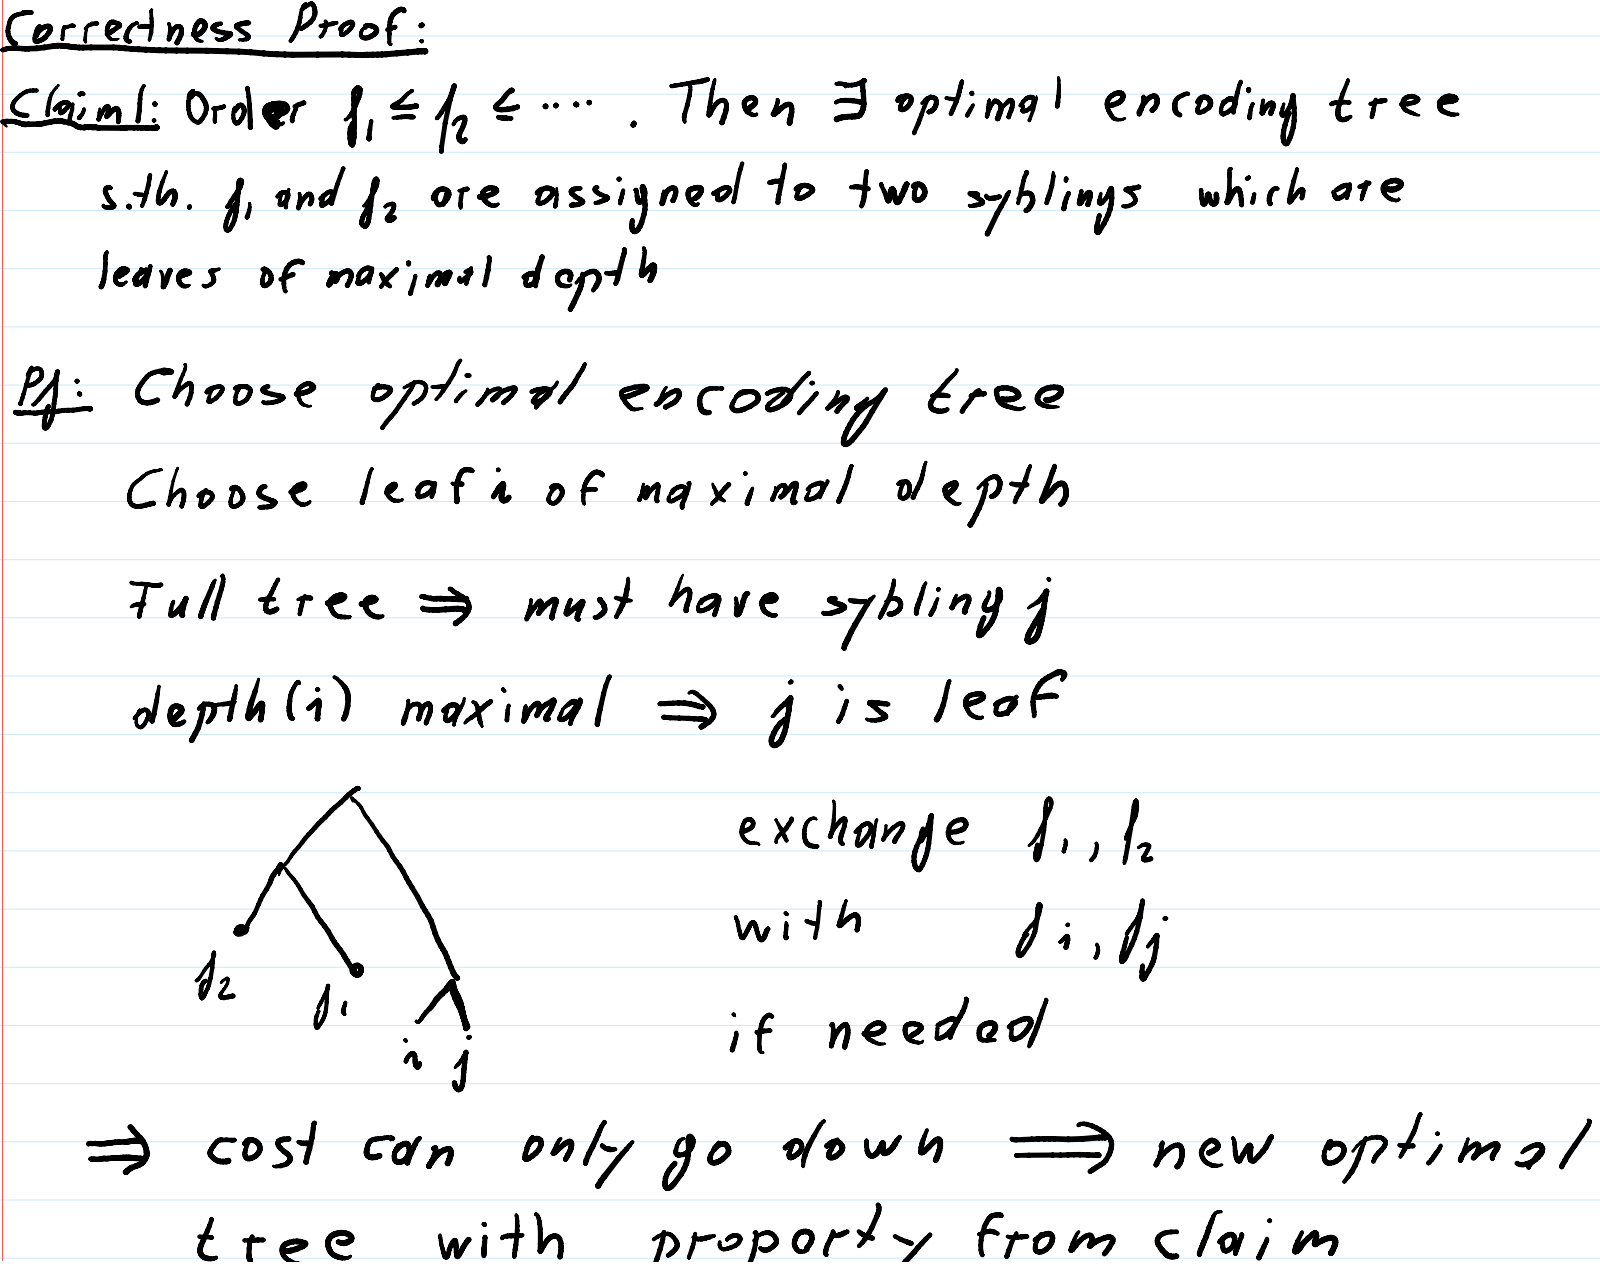 Correctness Proof:
Claim 1: Order f₁ ≤ f₂ ≤ .... . Then ∃ optimal encoding tree
s.th. f₁ and f₂ are assigned to two syblings which are
leaves of maximal depth
Pf: Choose optimal encoding tree
Choose leaf i of maximal depth
Full tree ⇒ must have sybling j
depth(i) maximal ⇒ j is leaf
f₂ f₁ i j
exchange f₁, f₂
with fi, fj
if needed
⇒ cost can only go down ⟹ new optimal
tree with property from claim